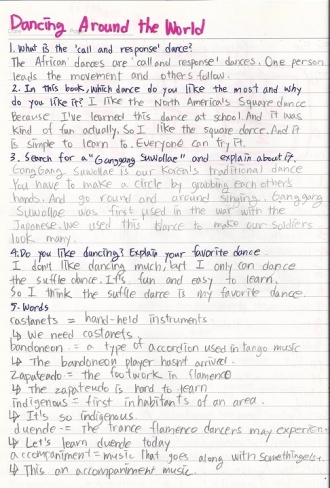 Dancing Around the World
1. What is the 'call and response' dance?
The African dances are 'call and response' dances. One person
leads the movement and others follow.
2. In this book, which dance do you like the most and why
do you like it? I like the North America's Square dance
Because I've learned this dance at school. And it was
kind of fun actually. So I like the square dance. And it
is simple to learn to. Everyone can try it.
3. Search for a "Ganggang Suwollae" and explain about it.
GangGang Suwollae is our Korean's traditional dance
You have to make a circle by grabbing each other's
hands. And go round and around singing. Ganggang
Suwollae was first used in the war with the
Japanese. We used this dance to make our soldiers
look many.
4. Do you like dancing? Explain your favorite dance
I don't like dancing much, but I only can dance
the suffle dance. It's fun and easy to learn.
So I think the suffle dance is my favorite dance.
5. Words
castanets = hand-held instruments
↳ We need castanets.
bandoneon = a type of accordion used in tango music
↳ The bandoneon player hasn't arrived.
Zapateado = the footwork in flamenco
↳ The zapateudo is hard to learn
indigenous = first inhabitants of an area.
↳ It's so indigenous.
duende = the trance flamenco dancers may experien
↳ Let's learn duende today
accompaniment = music that goes along with something
↳ This an accompaniment music.